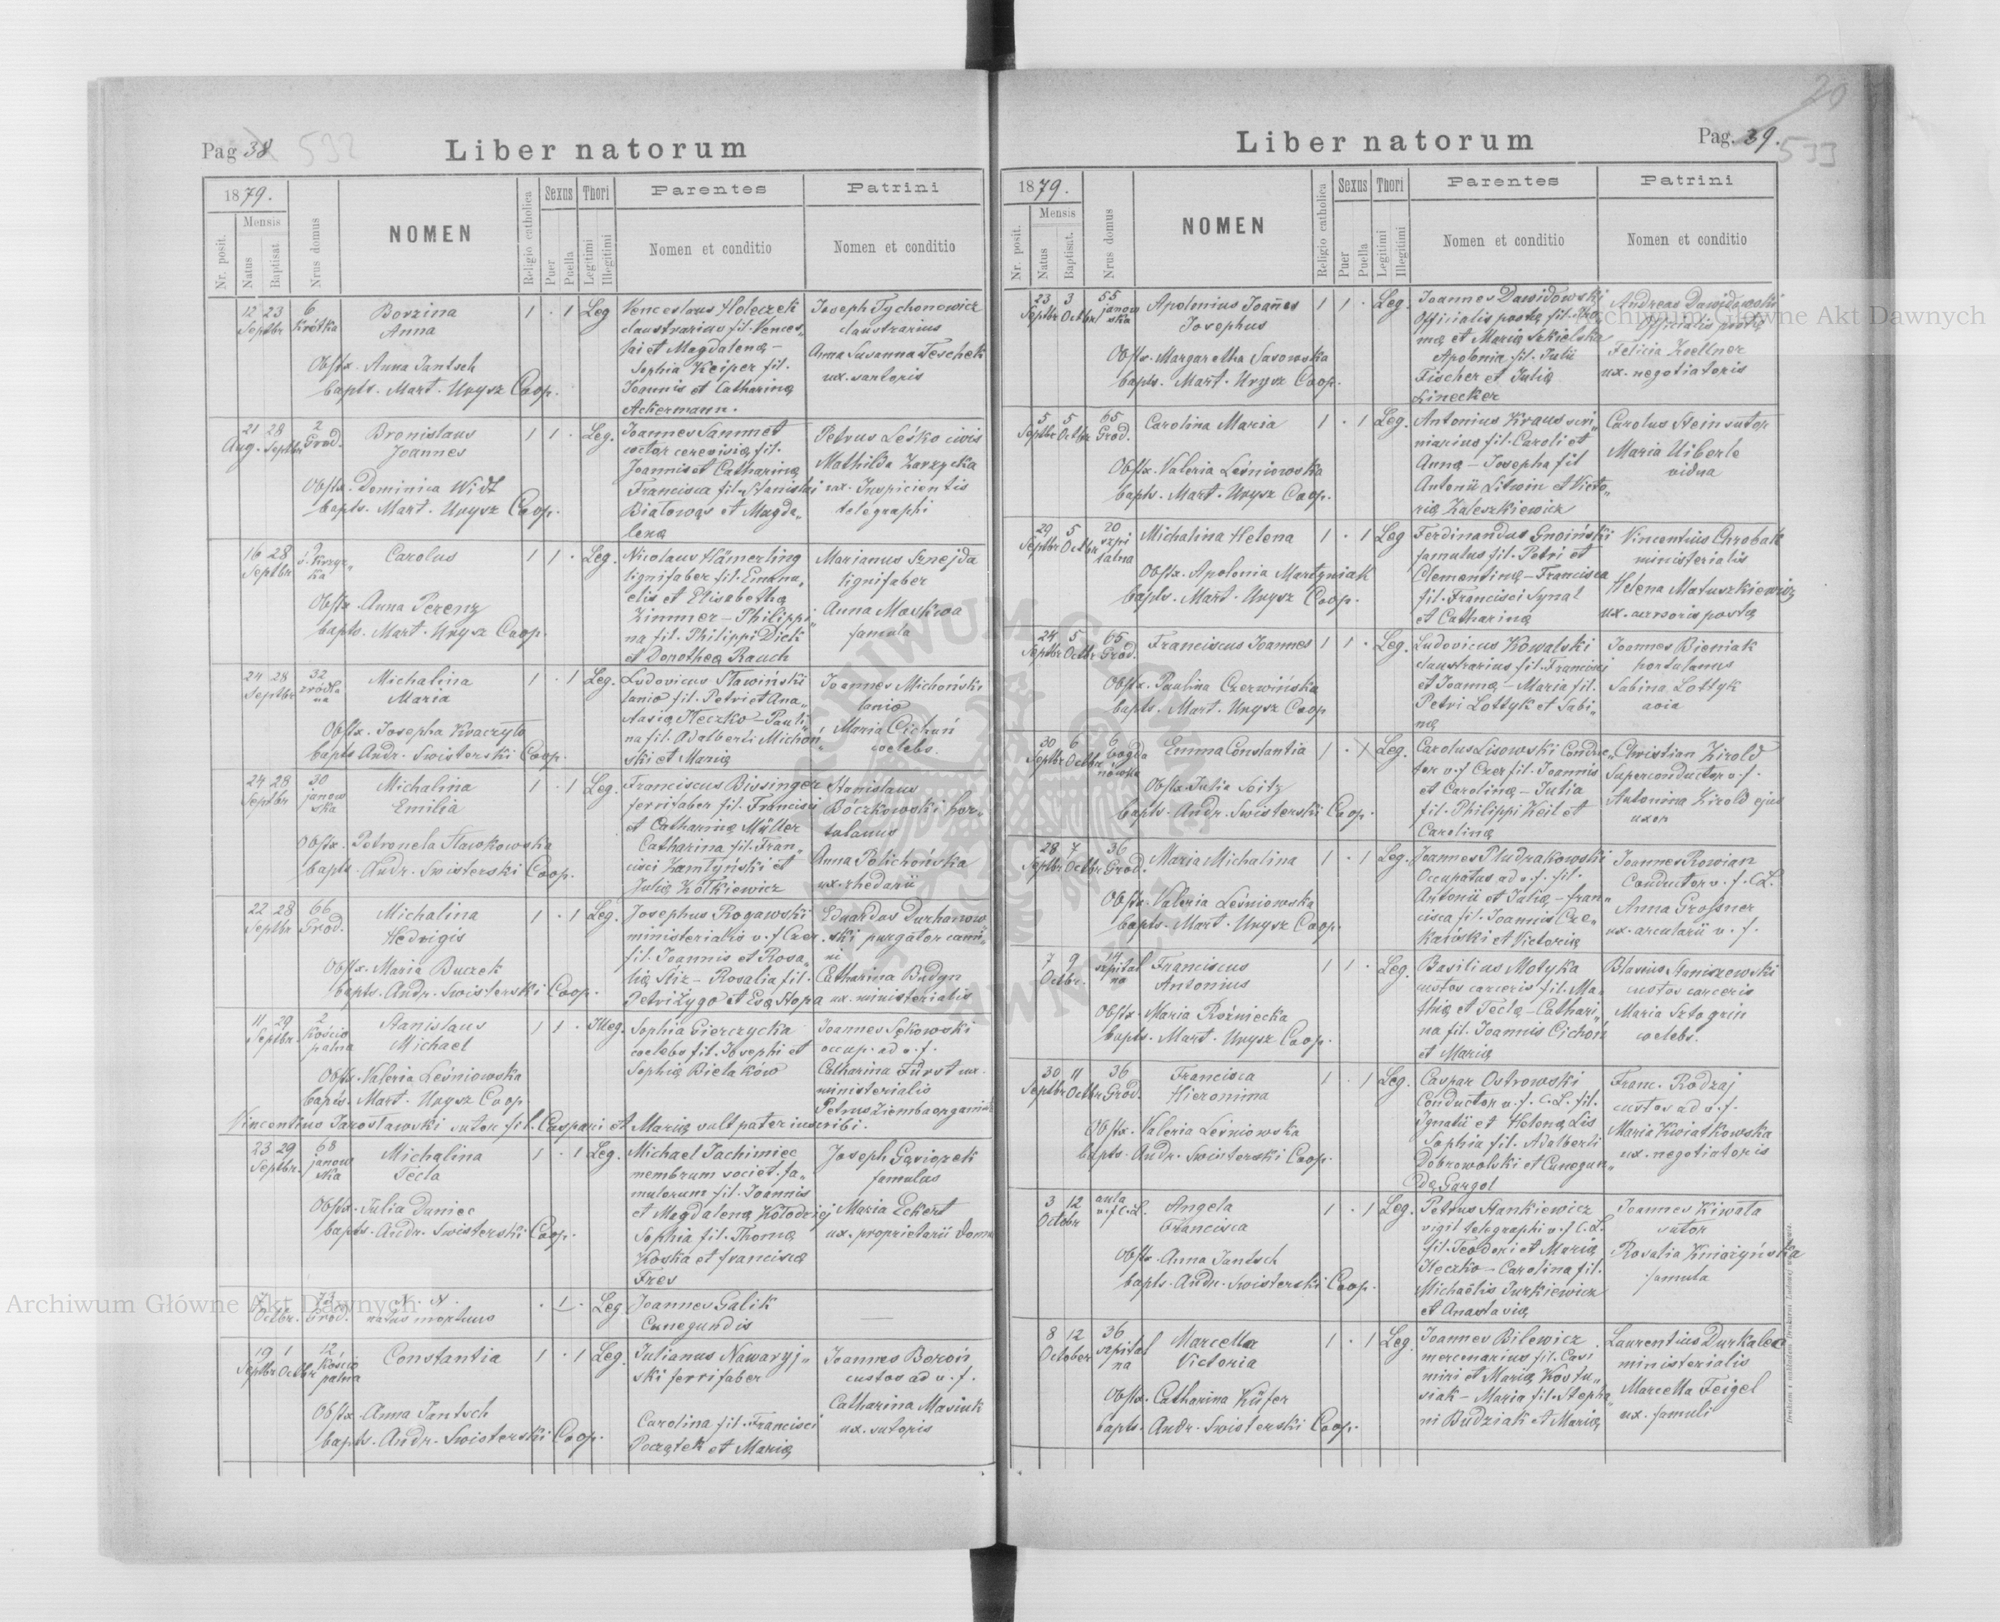 Pag 38 532
Liber natorum
1879.
Nr. posit.
Mensis
Natus
Baptisat.
Nrus domus
NOMEN
Religio catholica
Sexus
Puer
Puella
Thori
Legitimi
Illegitimi
Parentes
Nomen et conditio
Patrini
Nomen et conditio
12 Septbr 23 6 Krótka
Borzina
Anna
1 . 1 Leg
Obstx. Anna Jantsch
bapts. Mart. Urysz Coop.
Venceslaus Holeczek
claustrarius fil. Vences-
lai et Magdalena -
Sophia Keiper fil.
Joannis et Catharina
Ackermann.
Joseph Tychonowicz
claustrarius
Anna Susanna Teschek
ux. sartoris
21 Aug. 28 Septbr 2 Grod.
Bronislaus
Joannes
1 1 . Leg.
Obstx. Dominica Widt
bapts. Mart. Urysz Coop.
Joannes Sammet
coctor cerevisiæ fil.
Joannis et Catharina
Francisca fil. Stanislai
Białowąs et Magda-
lena
Petrus Leśko civis
Mathilda Zarzycka
ux. Inspicientis
telegraphi
16 Septbr 28
Carolus
1 1 . Leg.
Obstx Anna Perenz
bapts. Mart. Urysz Coop.
Nicolaus Hämerling
lignifaber fil. Emanu-
elis et Elisabetha
Zimmer - Philippi-
na fil. Philippi Dick
et Dorothea Rauch
Marianus Sznejda
lignifaber
Anna Moskwa
famula
24 Septbr 28 32 źródla na
Michalina
Maria
1 . 1 Leg.
Obstx. Josepha Kraczyło
bapts Andr. Swisterski Coop.
Ludovicus Sławiński
lanio fil. Petri et Ana-
stasia Heczko - Pauli-
na fil. Adalberti Michoń-
ski et Maria
Joannes Michoński
lanio
Maria Cichoń
coelebs.
24 Septbr 28 30 janow ska
Michalina
Emilia
1 . 1 Leg.
Obstx. Petronela Sławkowska
bapts Andr. Swisterski Coop.
Franciscus Bissinger
ferrifaber fil. Francisci
et Catharina Müller
Catharina fil. Fran-
cisci Hamtyński et
Julia Kotkiewicz
Stanislaus
Bóczkowski hor-
tulanus
Anna Polichońska
ux. rhedarii
22 Septbr 28 66 Grod.
Michalina
Hedvigis
1 . 1 Leg.
Obstx. Maria Buczek
bapts. Andr. Swisterski Coop.
Josephus Rogawski
ministerialis v. f Czer.
fil. Joannis et Rosa-
lia Stiz - Rosalia fil.
Petri Zygo et Eva Stopa
Eduardus Durhanow
ski purgator cami-
ni
Catharina Budyn
ux. ministerialis
11 Septbr. 29 2 Kościo palna
Stanislaus
Michael
1 1 . Illeg.
Obstx. Valeria Leśniowska
bapts. Mart. Urysz Coop.
Sophia Gierczycka
coelebs fil. Josephi et
Sophia Bielakow
Joannes Sękowski
occup. ad v. f.
Catharina Fürst ux.
ministerialis
Petrus Ziemba organist
Vincentius Jarosławski sutor fil. Caspari et Maria vult pater inscribi.
23 Septbr. 29 68 janow ska
Michalina
Tecla
1 . 1 Leg.
Obstx. Julia Daniec
bapts. Andr. Swisterski Coop.
Michael Jachimiec
membrum societ. fa-
mulorum fil. Joannis
et Magdalena Kołodziej
Sophia fil. Thoma
Koska et francisca
Fres
Joseph Gąsiorek
famulus
Maria Eckert
ux. proprietarii domu
7 Octbr. 73 Grod.
N. N.
natus mortuus
. 1 . Leg
Joannes Galik
Cunegundis
19 Septbr 1 Octbr 12 Kościo palna
Constantia
1 . 1 Leg.
Obstx. Anna Jantsch
bapts. Andr. Swisterski Coop.
Julianus Nawaryj-
ski ferrifaber
Carolina fil. Francisci
Początek et Maria
Joannes Boroń
custos ad v. f.
Catharina Masiuk
ux. sutoris
Liber natorum
Pag. 39. 533
20
1879.
Nr. posit.
Mensis
Natus
Baptisat.
Nrus domus
NOMEN
Religio catholica
Sexus
Puer
Puella
Thori
Legitimi
Illegitimi
Parentes
Nomen et conditio
Patrini
Nomen et conditio
23 Septbr 3 Octbr 55 janow ska
Apolonius Joannes
Josephus
1 1 . Leg.
Obstx. Margaretha Sasowska
bapts. Mart. Urysz Coop.
Joannes Dawidowski
Officialis posta fil. Tho-
ma et Maria Szkielska
Apolonia fil. Julii
Fischer et Julia
Linecker
Andreas Dawidowski
Officialis posta
Felicia Koellner
ux. negotiatoris
5 Septbr 5 Octbr 65 Grod.
Carolina Maria
1 . 1 Leg.
Obstx. Valeria Leśniowska
bapts. Mart. Urysz Coop.
Antonius Kraus scri-
niarius fil. Caroli et
Anna - Josepha fil
Antonii Litwin et Victo-
ria Kaleszkiewicz
Carolus Stein sutor
Maria Uiberle
vidua
29 Septbr 5 Octbr 20 szpi talna
Michalina Helena
1 . 1 Leg
Obstx. Apolonia Martyniak
bapts. Mart. Urysz Coop.
Ferdinandus Gnoiński
famulus fil. Petri et
Clementina - Francisca
fil. Francisci Synal
et Catharina
Vincentius Chrobak
ministerialis
Helena Matuszkiewicz
ux. cursoris posta
24 Septbr 5 Octbr 65 Grod.
Franciscus Joannes
1 1 . Leg.
Obstx. Paulina Czerwińska
bapts. Mart. Urysz Coop
Ludovicus Kowalski
claustrarius fil. Francisci
et Joanna - Maria fil.
Petri Lottyk et Sabi-
na
Joannes Bieniak
hortulanus
Sabina Lottyk
avia
30 Septbr 6 Octbr 6 bogda nówka
Emma Constantia
1 . 1 Leg.
Obstx Julia Seitz
bapts. Andr. Swisterski Coop.
Carolus Lisowski Conduc-
tor v. f Czer fil. Joannis
et Carolina - Julia
fil. Philippi Keil et
Carolina
Christian Kirold
Superconductor v. f.
Antonina Kirold ejus
uxor
28 Septbr 7 Octbr 36 Grod.
Maria Michalina
1 . 1 Leg.
Obstx. Valeria Leśniowska
bapts. Mart. Urysz Coop.
Joannes Pludrakowski
Occupatus ad v. f. fil.
Antonii et Julia, - fran-
cisca fil. Joannis Cze-
kański et Victoria
Joannes Rowian
Conductor v. f. C. L.
Anna Grossner
ux. arcularii v. f.
7 Octbr. 9 14 szpital na
Franciscus
Antonius
1 1 . Leg.
Obstx. Maria Rożniecka
bapts. Mart. Urysz Coop.
Basilius Motyka
custos carceris fil. Ma-
thia et Tecla - Cathari-
na fil. Joannis Cichoń
et Maria
Blasius Staniszewski
custos carceris
Maria Sztogrin
coelebs.
30 Septbr 11 Octbr 36 Grod.
Francisca
Hieronima
1 . 1 Leg.
Obstx. Valeria Leśniowska
bapts. Andr. Swisterski Coop.
Caspar Ostrowski
Conductor v. f. C. L. fil.
Ignatii et Helena Lis
Sophia fil. Adalberti
Dobrowolski et Cunegun-
da Gargol
Franc. Rodzaj
custos ad v. f.
Maria Kwiatkowska
ux. negotiatoris
3 Octobr 12 aula v. f. C. L.
Angela
Francisca
1 . 1 Leg.
Obstx. Anna Jantsch
bapts. Andr. Swisterski Coop.
Petrus Stankiewicz
vigil telegraphi v. f. C. L.
fil. Teodori et Maria
Heczko - Carolina fil.
Michaëlis Jurkiewicz
et Anastasia
Joannes Kiwata
sutor
Rosalia Kniażyńska
famula
8 October 12 36 szpital na
Marcella
Victoria
1 . 1 Leg.
Obstx. Catharina Küfer
bapts. Andr. Swisterski Coop.
Joannes Bilewicz
mercenarius fil. Casi
miri et Maria Kostu-
siak - Maria fil. Stepha-
ni Budziak et Maria
Laurentius Durkalec
ministerialis
Marcella Feigel
ux. famuli
Archiwum Główne Akt Dawnych
Archiwum Główne Akt Dawnych